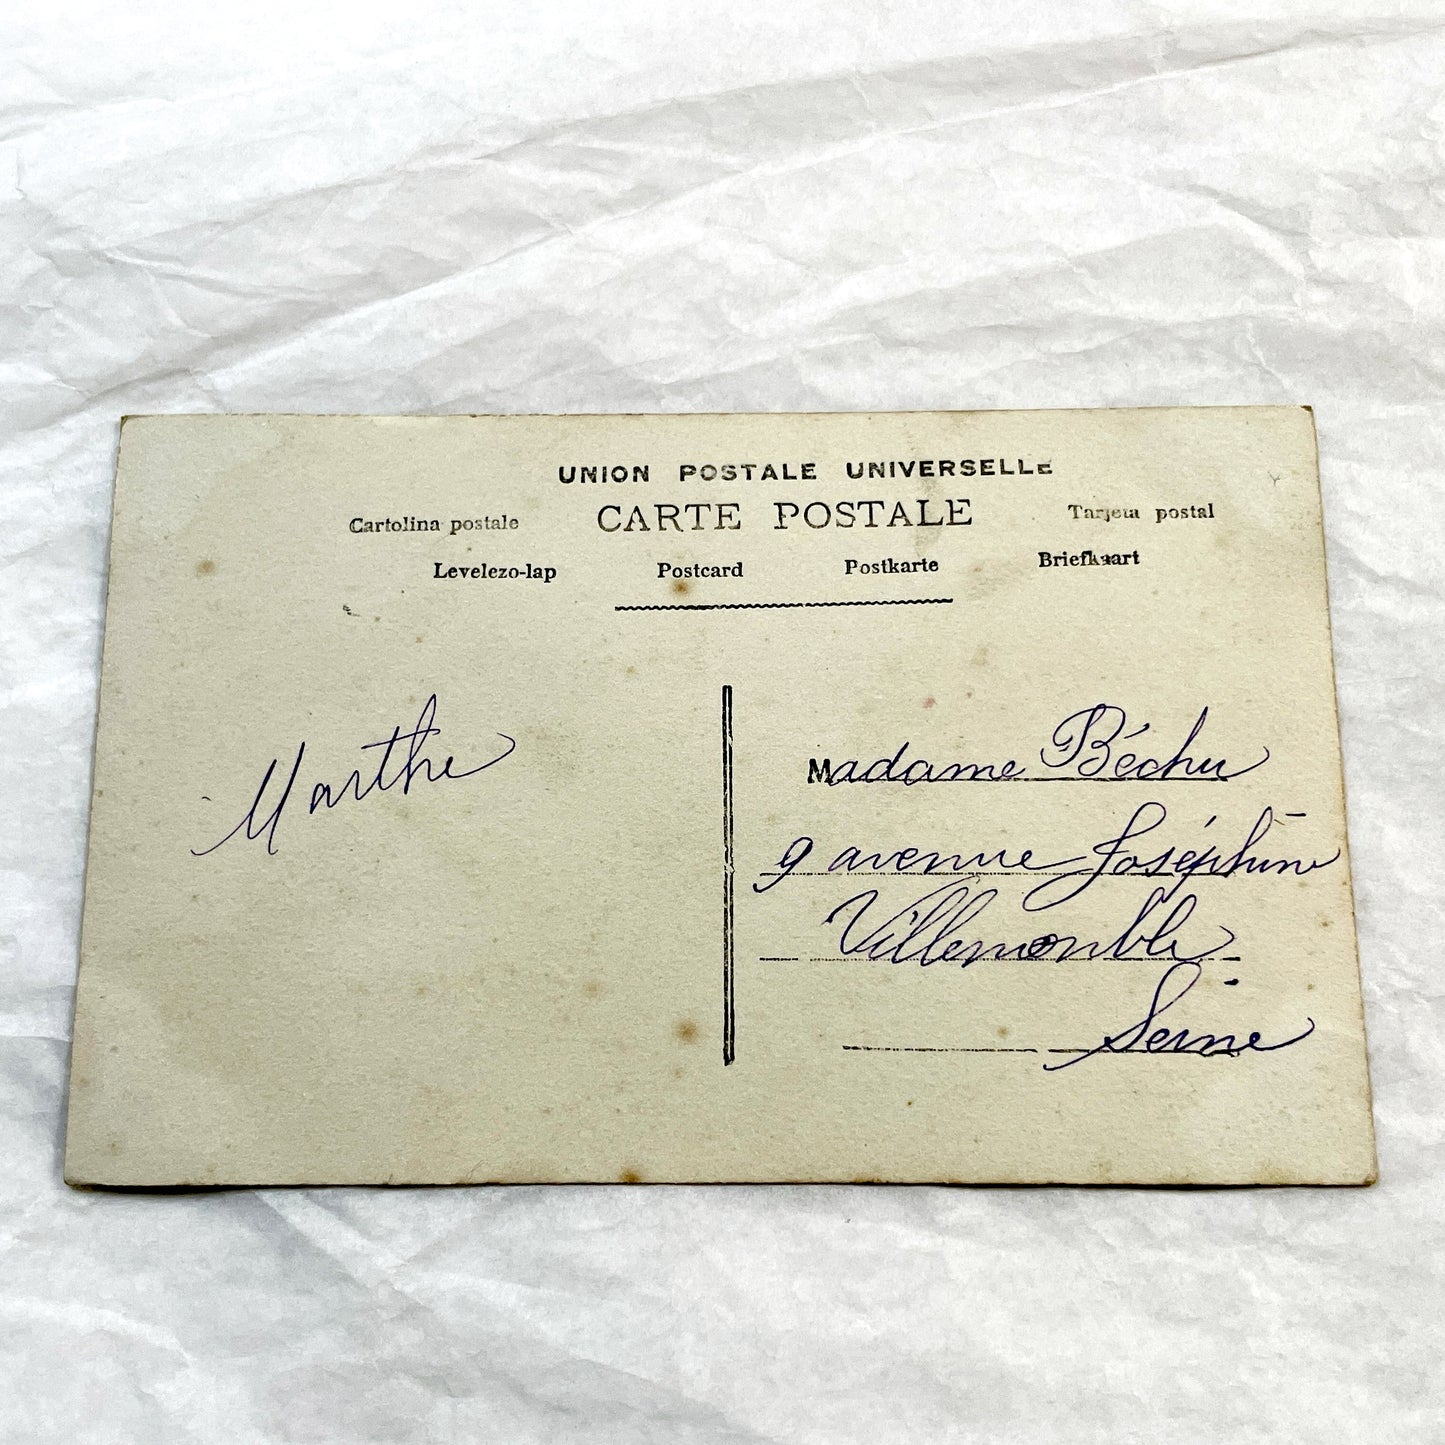 UNION POSTALE UNIVERSELLE
Cartolina postale CARTE POSTALE Tarjeta postal
Levelezo-lap Postcard Postkarte Briefkaart
Marthe
Madame Béchu
9 avenue Joséphine
Villemomble
Seine